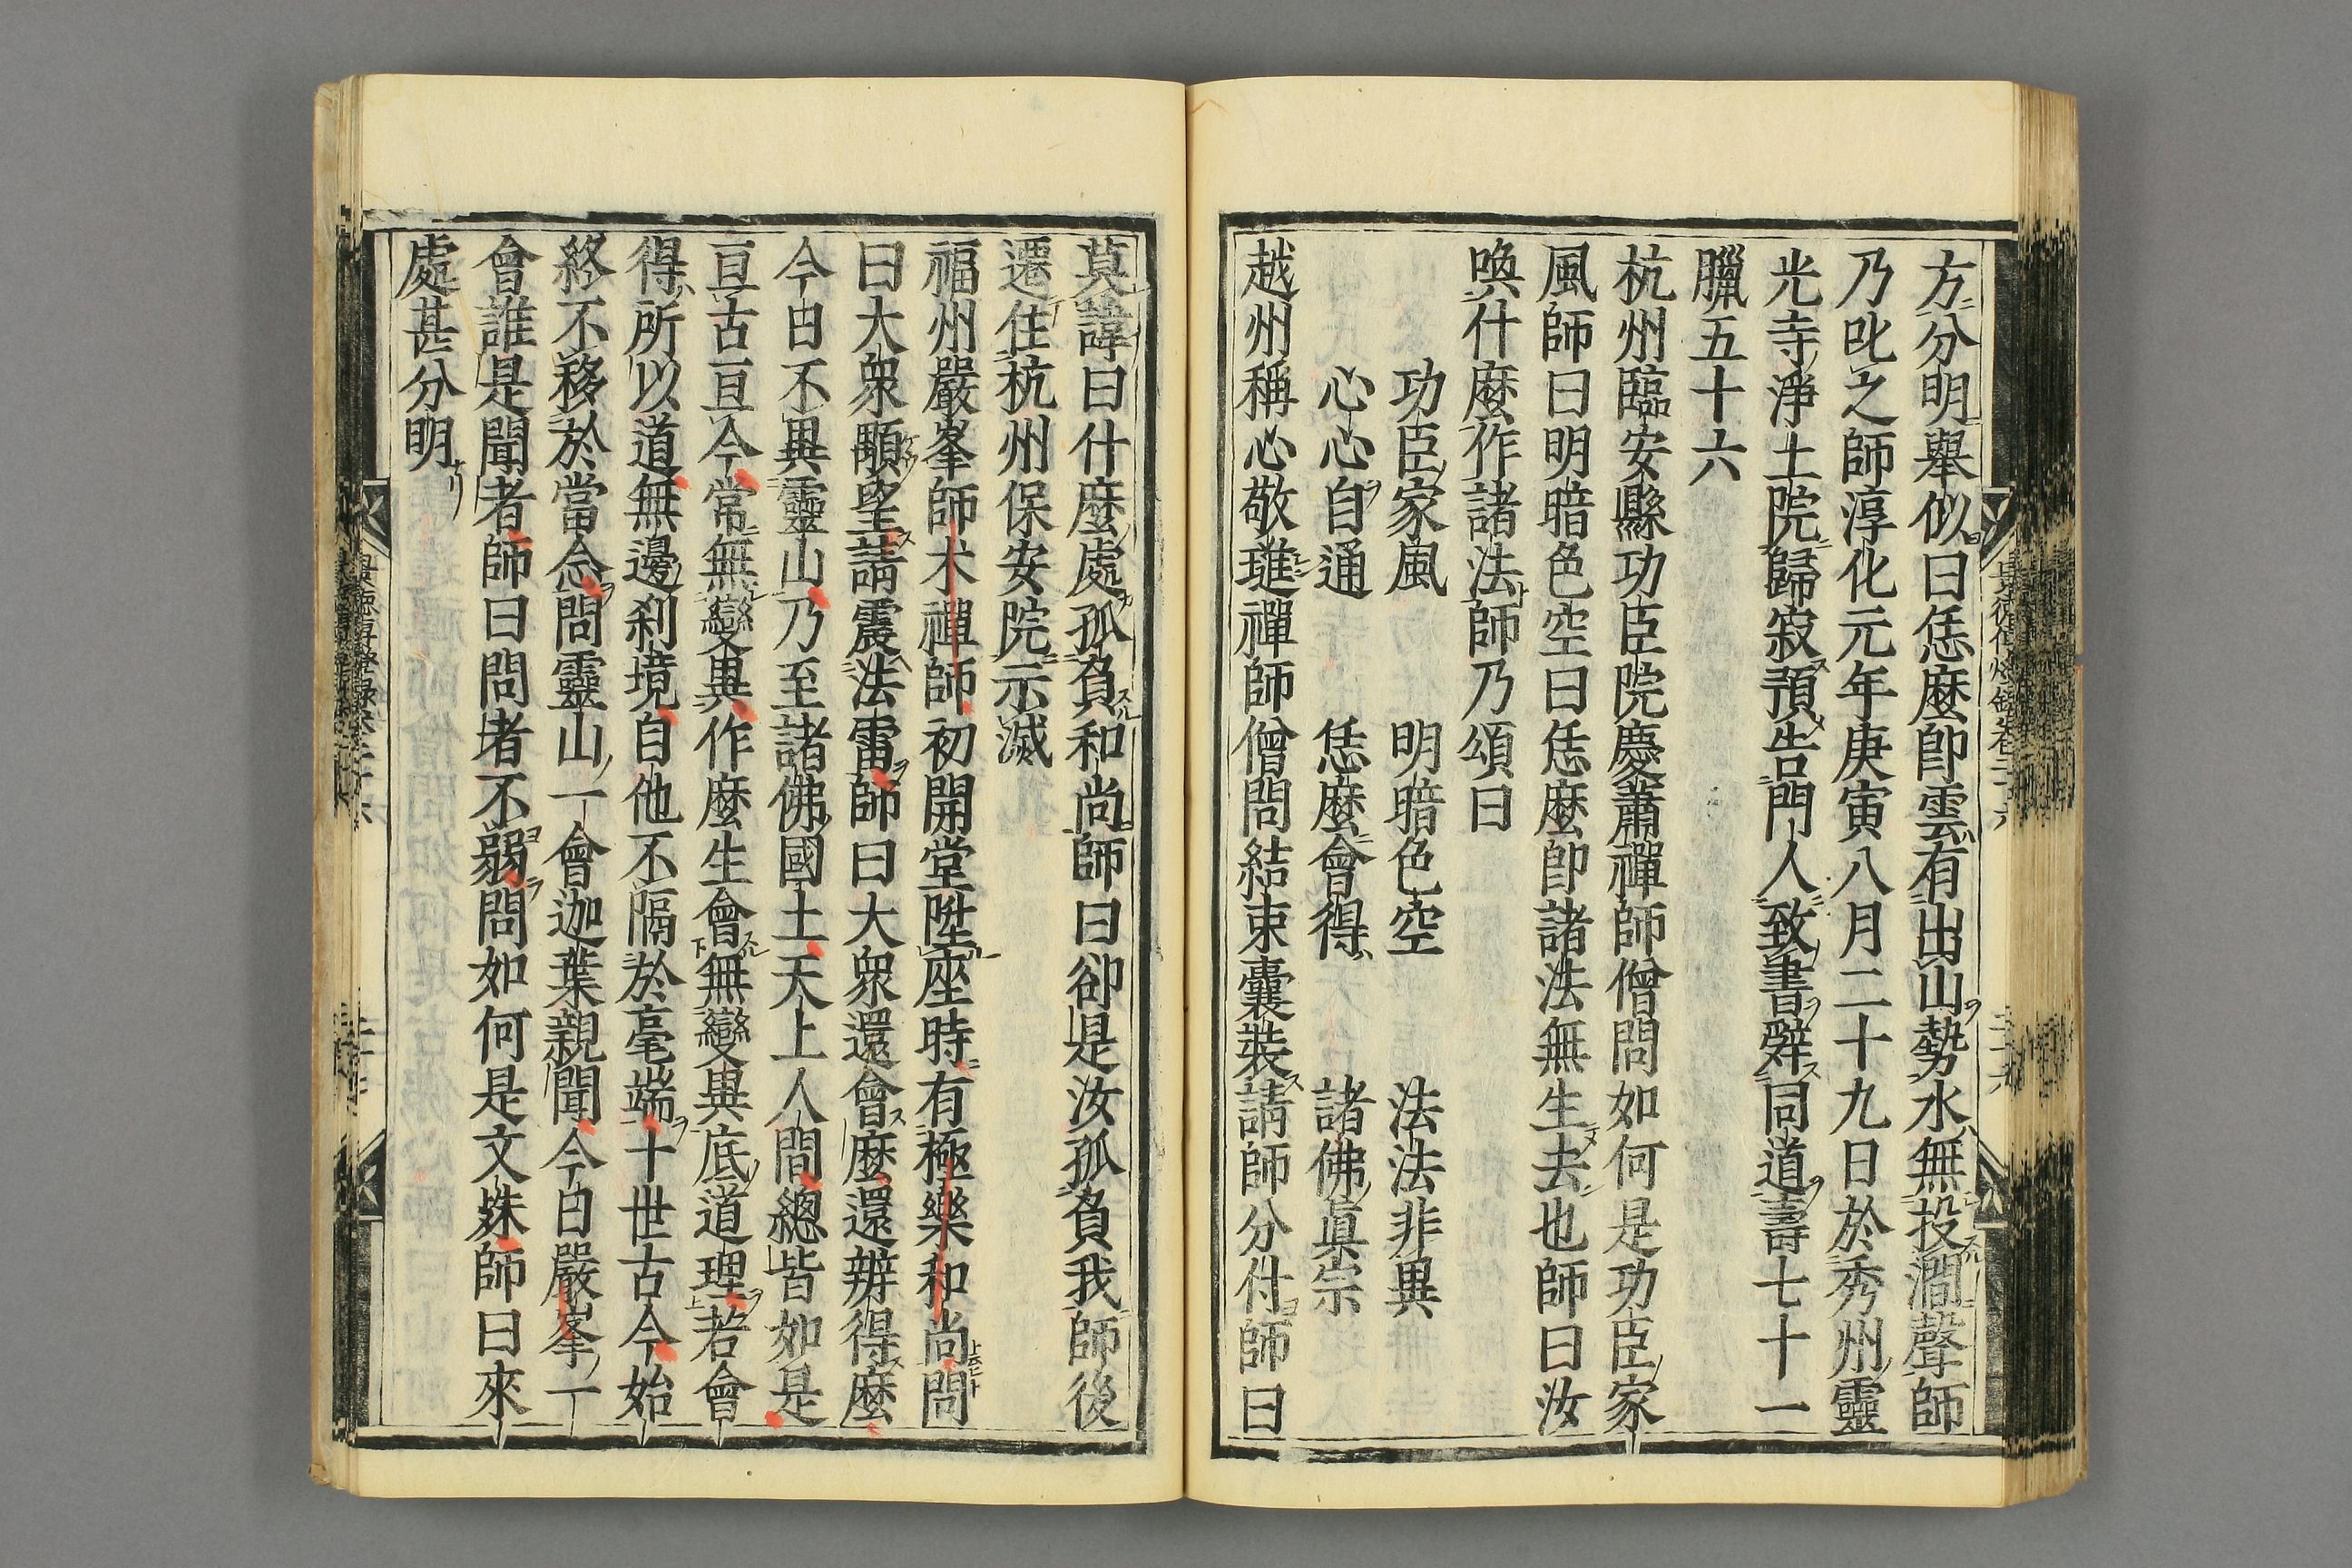 方分明舉似曰恁麽卽雲有出山勢水無投澗聲師
乃叱之師淳化元年庚寅八月二十九日於秀州靈
光寺淨土院歸寂預告門人致書辭同道壽七十一
臘五十六
杭州臨安縣功臣院慶蕭禪師僧問如何是功臣家
風師曰明暗色空曰恁麽卽諸法無生去也師曰汝
喚什麽作諸法師乃頌曰
功臣家風　明暗色空　法法非異
心心自通　恁麽會得　諸佛眞宗
越州稱心敬璡禪師僧問結束囊裝請師分付師曰
莫諱曰什麽處孤負和尚師曰卻是汝孤負我師後
遷住杭州保安院示滅
福州嚴峯師朮禪師初開堂陞座時有極樂和尚問
曰大衆顒望請震法雷師曰大衆還會麽還辨得麽
今日不異靈山乃至諸佛國土天上人間總皆如是
亘古亘今常無變異作麽生會無變異底道理若會
得所以道無邊刹境自他不隔於毫端十世古今始
終不移於當念問靈山一會迦葉親聞今日嚴峯一
會誰是聞者師曰問者不弱問如何是文殊師曰來
處甚分明